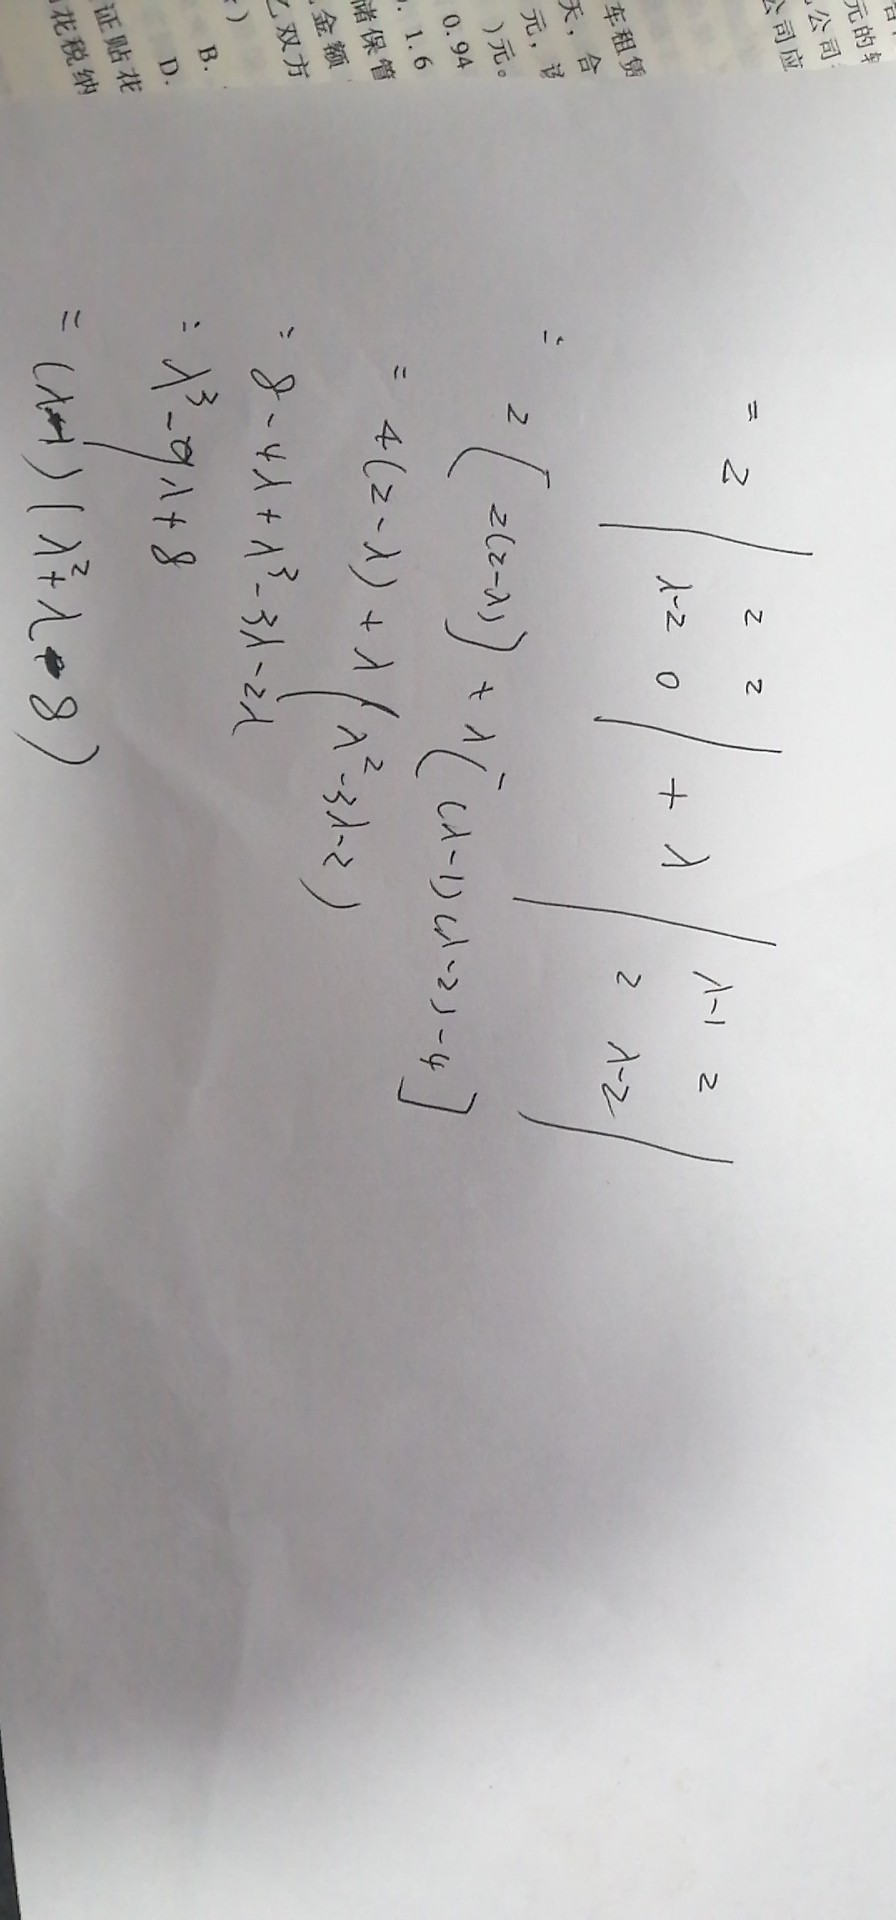 元的
公司
公司应
车租赁
天，合
元，
)元。
0.94
. 1.6
储保管
金额
乙双方
)
B.
D.
证贴花
花税纳
= 2 | 2 2 | + λ | λ-1 2 |
| λ-2 0 | | 2 λ-2 |
= 2[2(2-λ)] + λ[(λ-1)(λ-2)-4]
= 4(2-λ)+λ(λ²-3λ-2)
= 8-4λ+λ³-3λ-2λ
= λ³-9λ+8
= (λ-1)(λ²+λ-8)